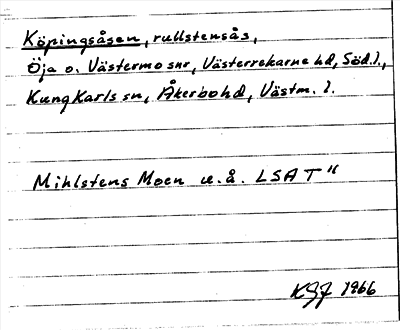 Köpingsåsen, rullstensås,
Öja o. Västermo snr, Västerrekarne hd, Söd. l.,
Kung Karls sn, Åkerbo hd, Västm. l.
Mihlstens Moen u.å. LSA T"
KGJ 1966